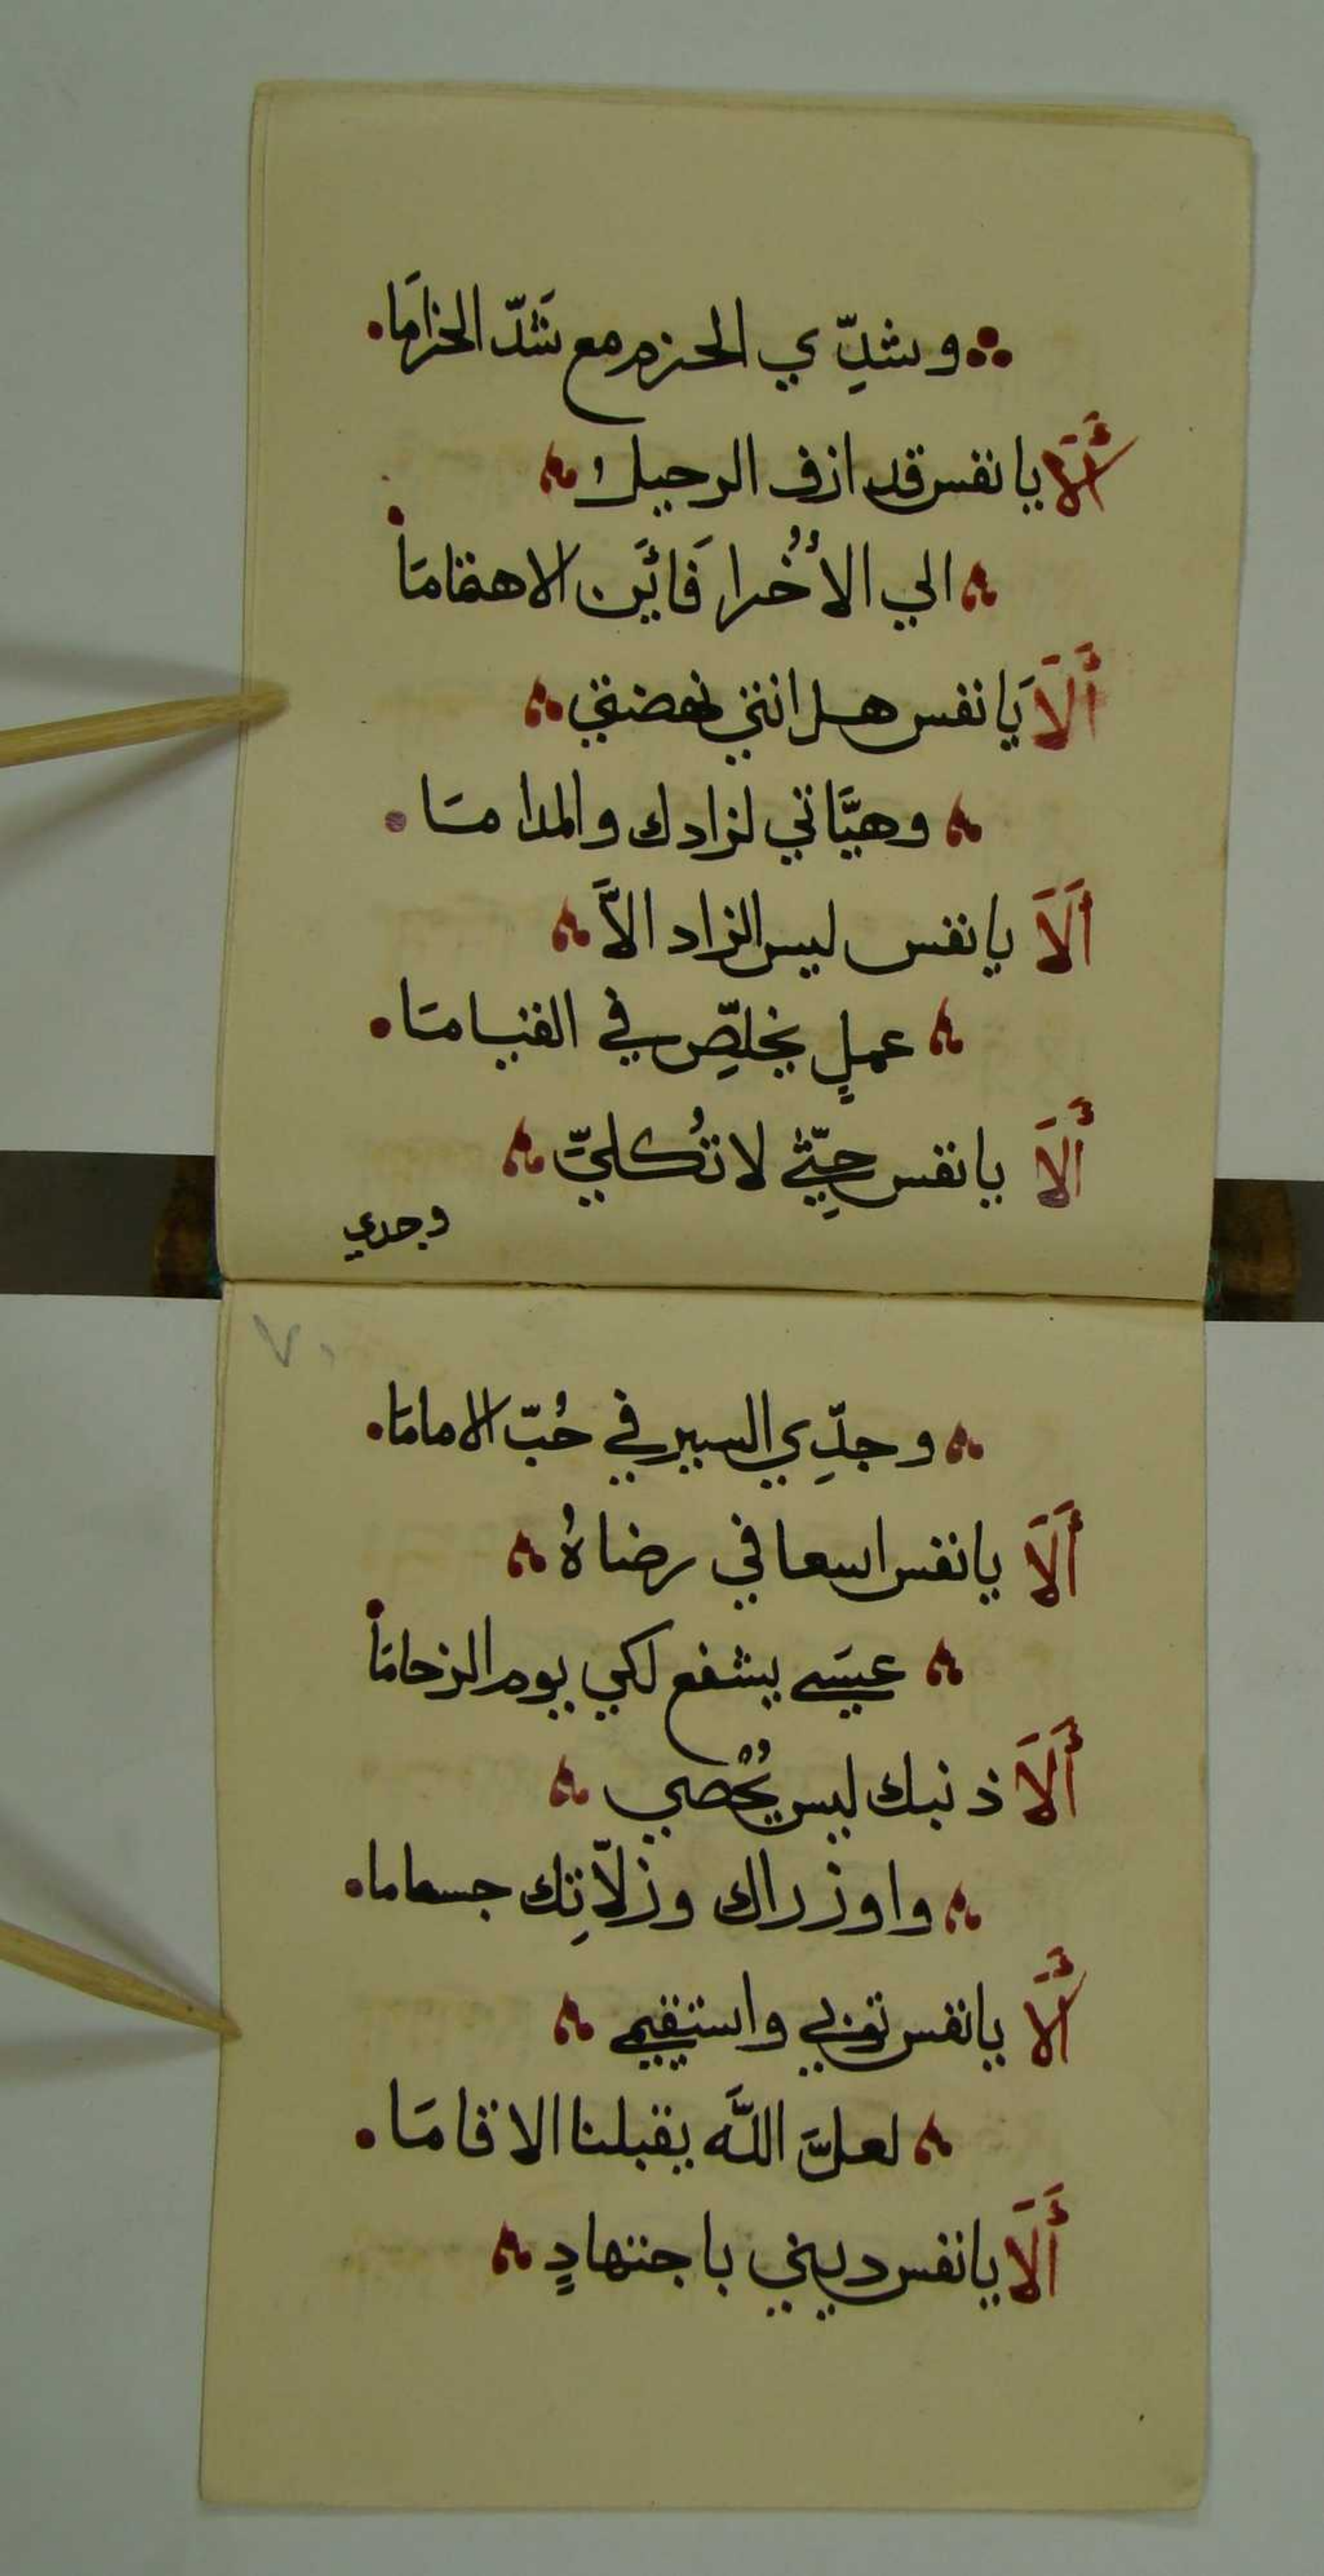 وشدِّي الحزم مع شَدّ الحزامَا
أَلَا يا نفس قد ازف الرحيل
الي الأُخُرا فَائَين الاهتمامَا
أَلَا يَا نفس هل انتي نهضتي
وهيَّاتي لزادك والمدامَا
أَلَا يا نفس ليس الزاد الاَّ
عملٍ يخلِّص في القيامَا
أَلَا يا نفس حِثّي لا تُكلِّي
وجدي
٧٠
وجدِّي السير في حُبّ الامامَا
أَلَا يا نفس اسعا في رضاهُ
عيسَي يشفع لكي يوم الزحامَا
أَلَا ذنبك ليس يُحْصي
واوزراك وزلّاتِك جساما
أَلَا يا نفس توبي واستقيمي
لعلَّ اللَّه يقبلنا الاقامَا
أَلَا يا نفس ديني باجتهادٍ